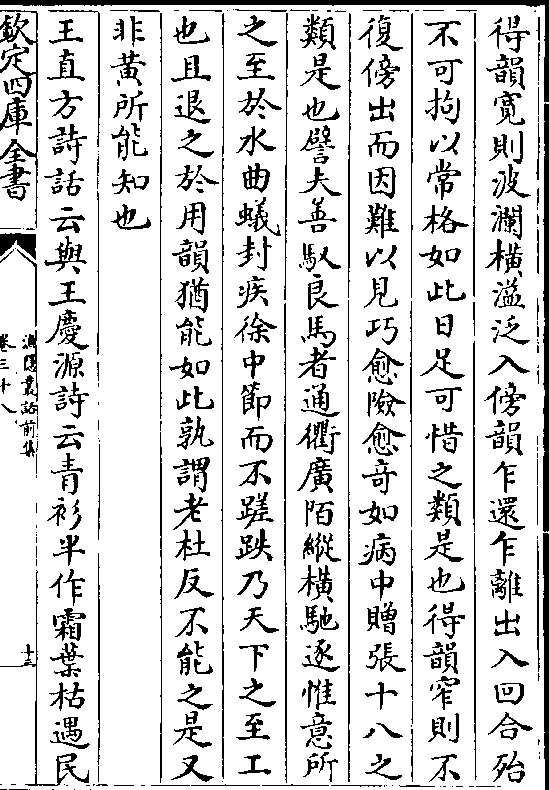 得韻寛則波瀾横溢泛入傍韻乍還乍離出入回合殆
不可拘以常格如此日足可惜之類是也得韻窄則不
復傍出而因難以見巧愈險愈奇如病中贈張十八之
類是也譬夫善馭良馬者通衢廣陌縱橫馳逐惟意所
之至於水曲蟻封疾徐中節而不蹉跌乃天下之至工
也且退之於用韻猶能如此孰謂老杜反不能之是又
非黄所能知也
王直方詩話云與王慶源詩云青衫半作霜葉枯遇民
欽定四庫全書
漁隱叢話前集
卷三十八
十三